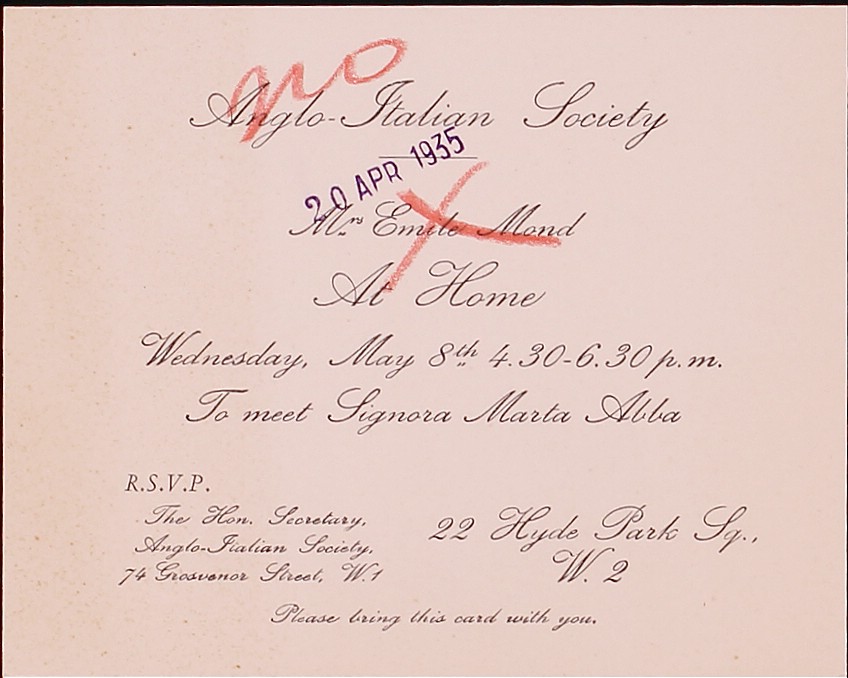 no
Anglo-Italian Society
20 APR 1935
Mrs Emile Mond
At Home
Wednesday, May 8th 4.30-6.30 p.m.
To meet Signora Marta Abba
R.S.V.P.
The Hon. Secretary,
Anglo-Italian Society,
74 Grosvenor Street, W.1
22 Hyde Park Sq.,
W. 2
Please bring this card with you.